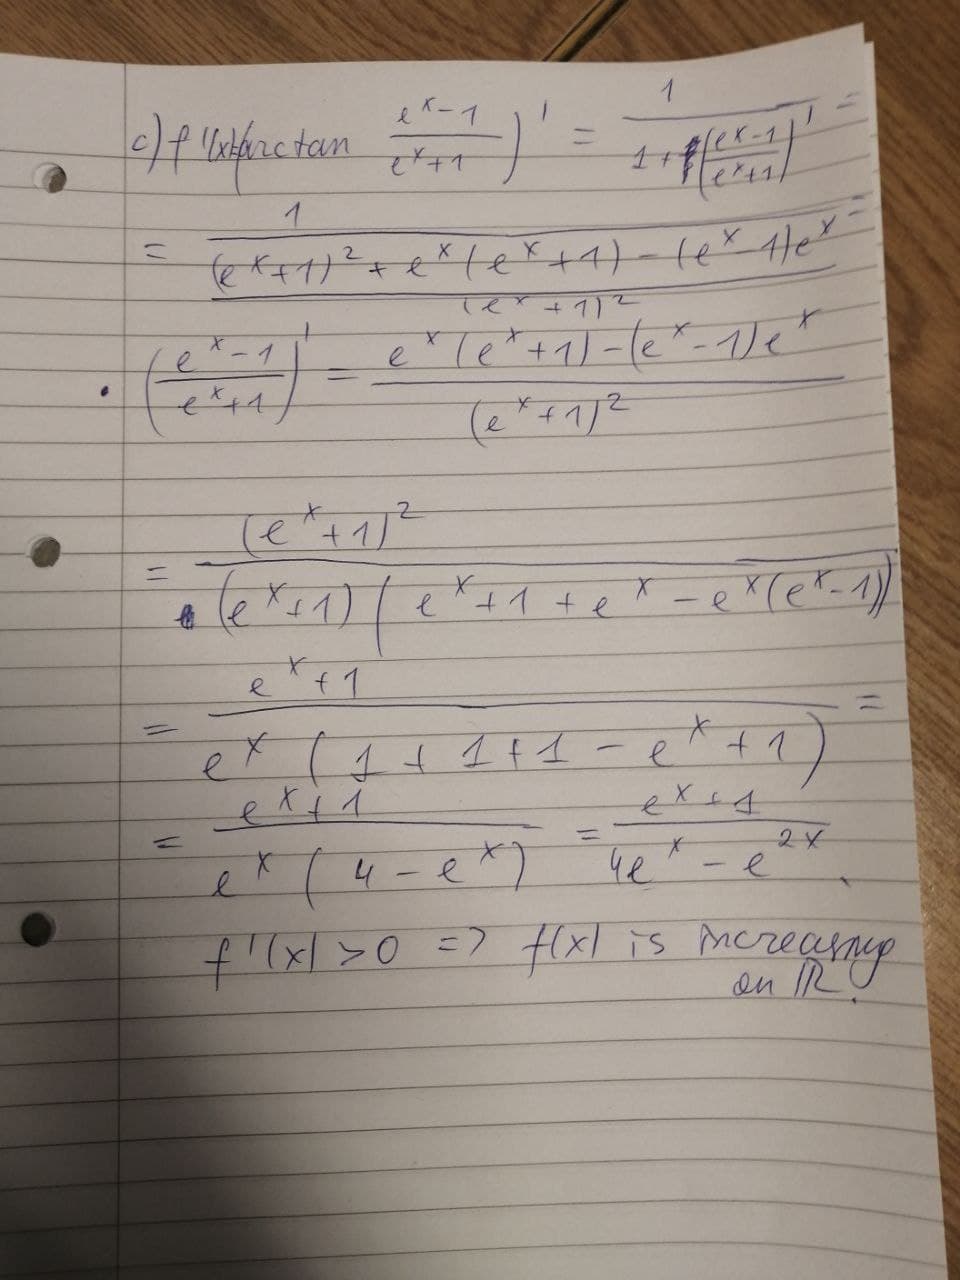 c) f'(x)=(arctan \frac{e^x-1}{e^x+1})' = \frac{1}{1+(\frac{e^x-1}{e^x+1})'} =
= \frac{1}{\frac{(e^x+1)^2+e^x(e^x+1)-(e^x-1)e^x}{(e^x+1)^2}} =
• (\frac{e^x-1}{e^x+1})' = \frac{e^x(e^x+1)-(e^x-1)e^x}{(e^x+1)^2}
= \frac{(e^x+1)^2}{(e^x+1)(e^x+1+e^x-e^x(e^x-1))}
= \frac{e^x+1}{e^x(1+1+1-e^x+1)} =
= \frac{e^x+1}{e^x(4-e^x)} = \frac{e^x+1}{4e^x-e^{2x}}.
f'(x)>0 => f(x) is increasing
on ℝ.